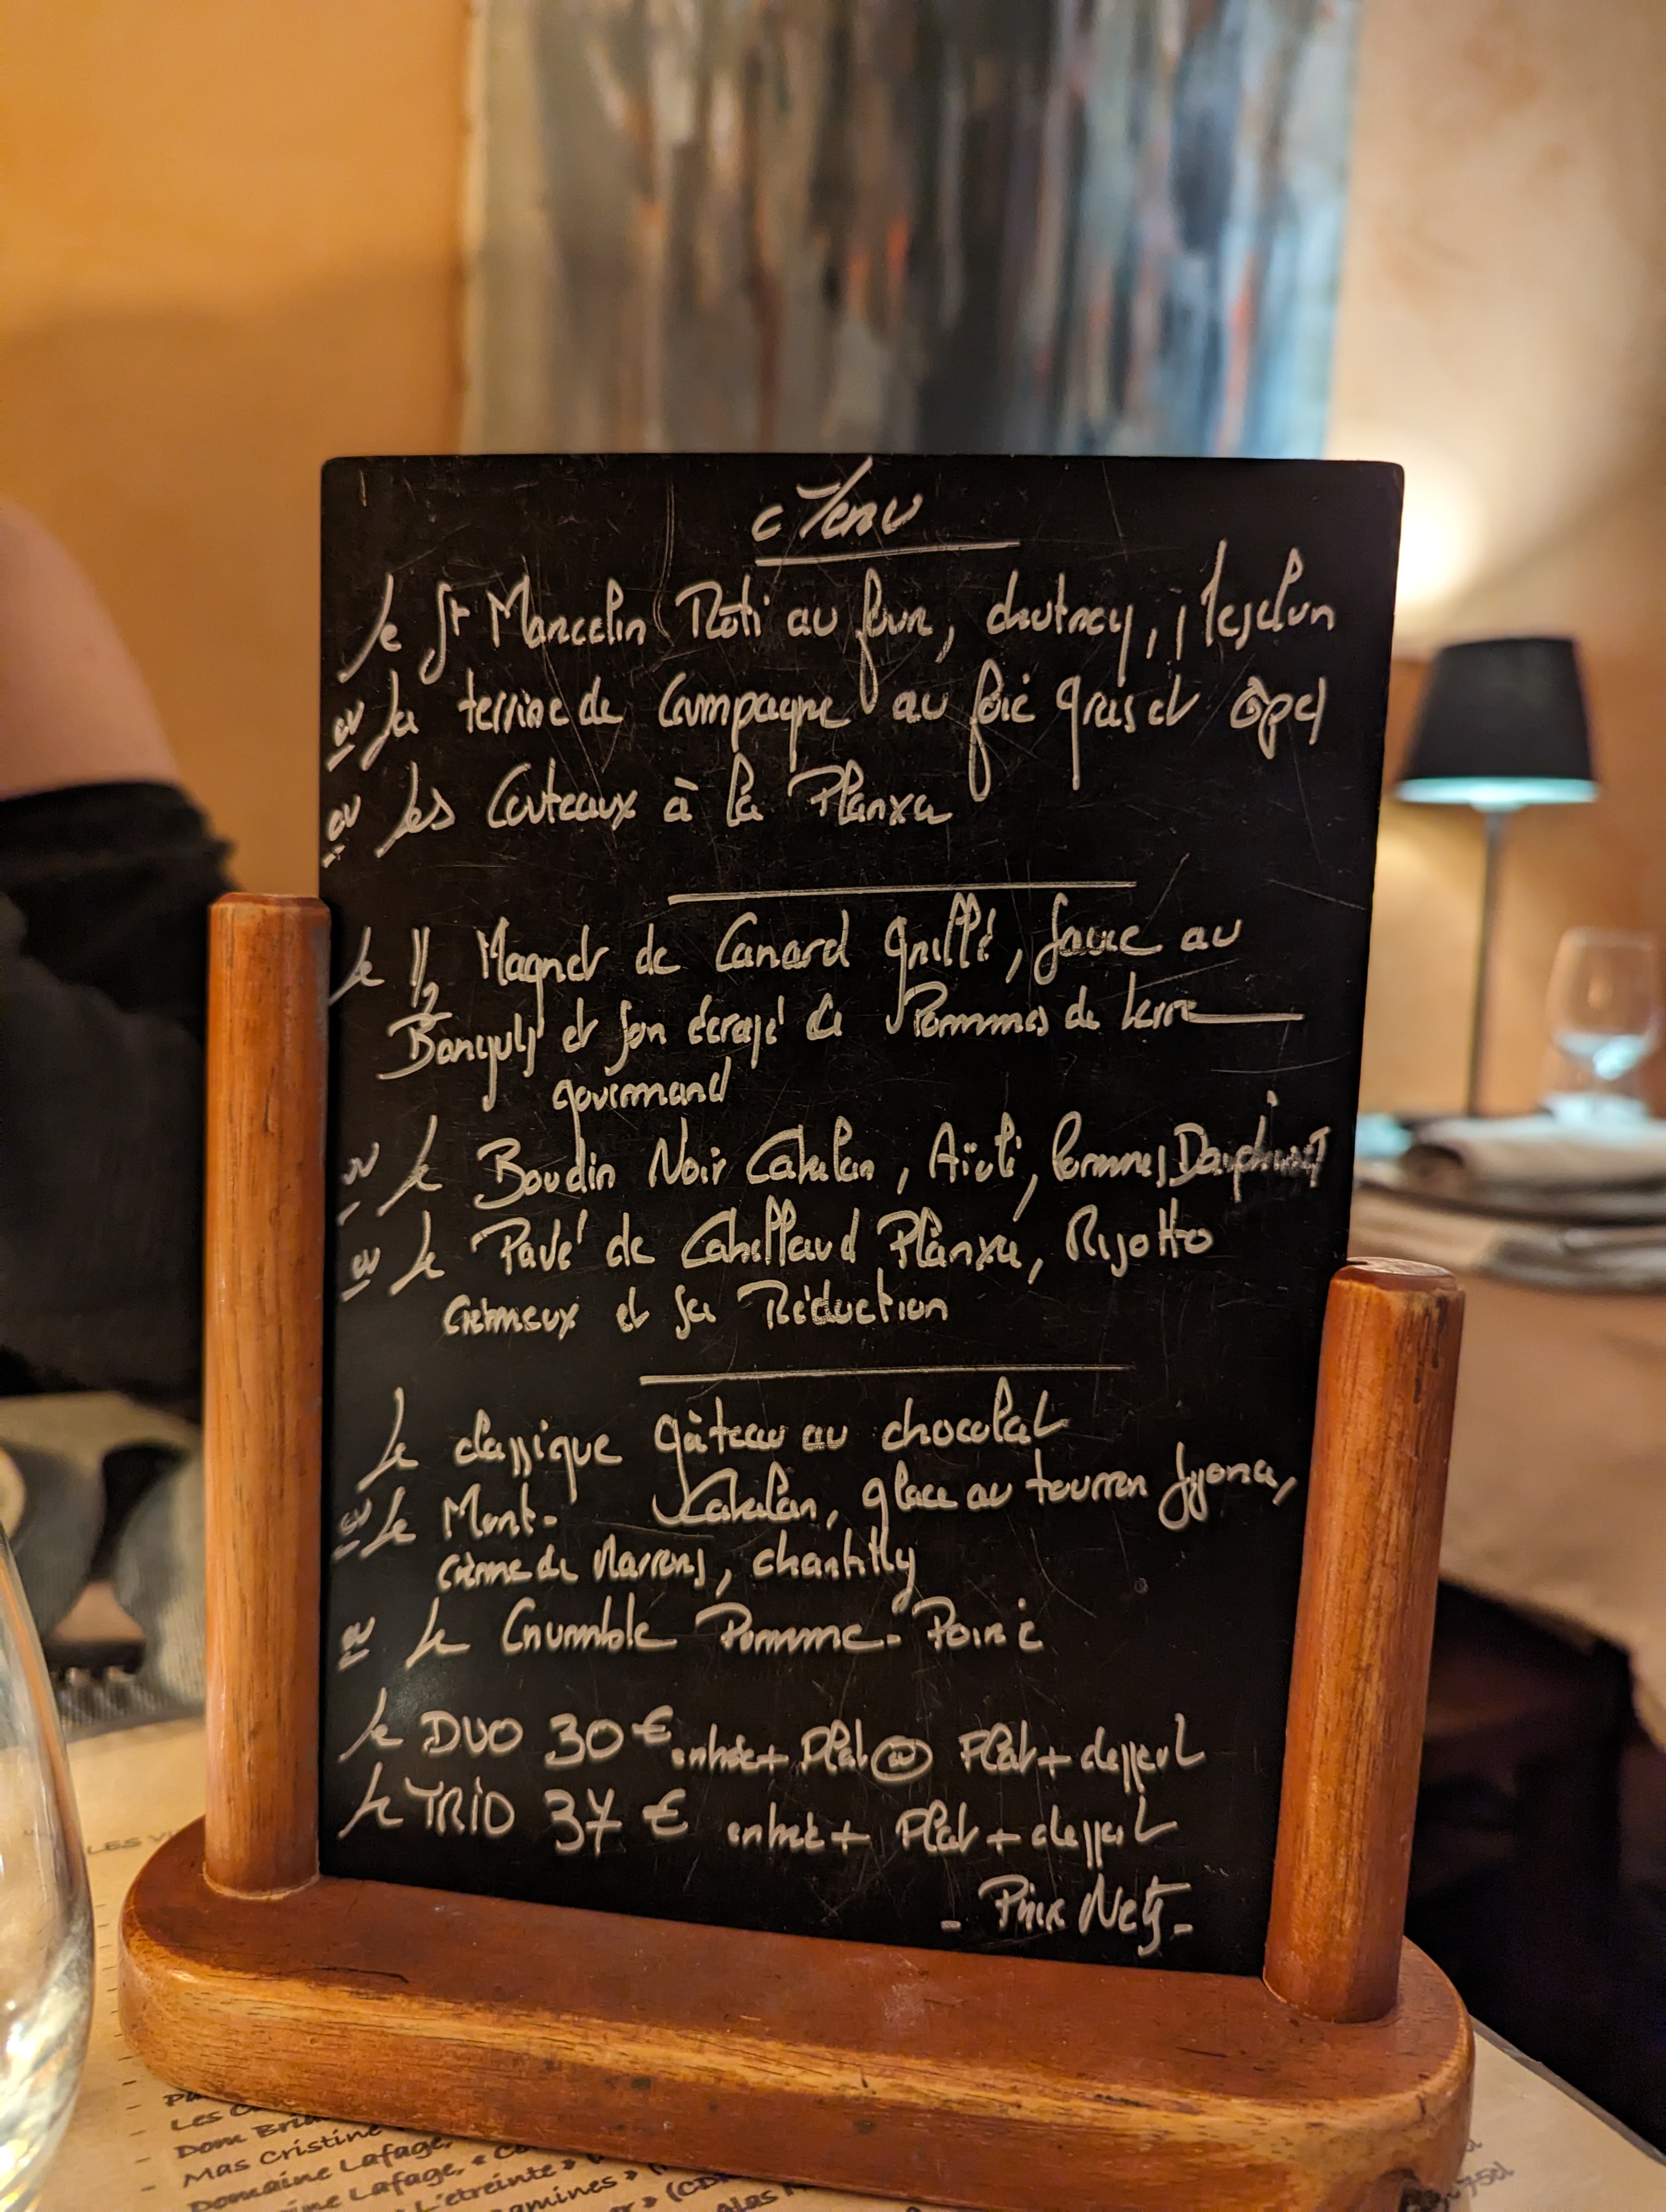 Menu
Le St Marcelin Roti au four, chutney,
ou La terrine de Campagne au foie gras et
ou Les Couteaux à la Planxa
Le 1/2 Magret de Canard Grillé, sauce au
Banyuls et son écrasé de Pommes de terre
gourmand
ou Le Boudin Noir Catalan, Aïoli, Pommes Dauphines
ou Le Pavé de Cabillaud Planxa, Risotto
Crémeux et sa Réduction
Le classique gâteau au chocolat
ou Le Mont- Catalan, glace au tourron Jijona,
crème de Marrons, chantilly
ou Le Crumble Pomme-Poire
Le DUO 30€ entrée + Plat ou Plat + dessert
Le TRIO 37€ entrée + Plat + dessert
- Prix Nets -
LES
Les
Dom
Mas Cristine
Domaine Lafage,
Lafage, «
L'etreinte »
75cl